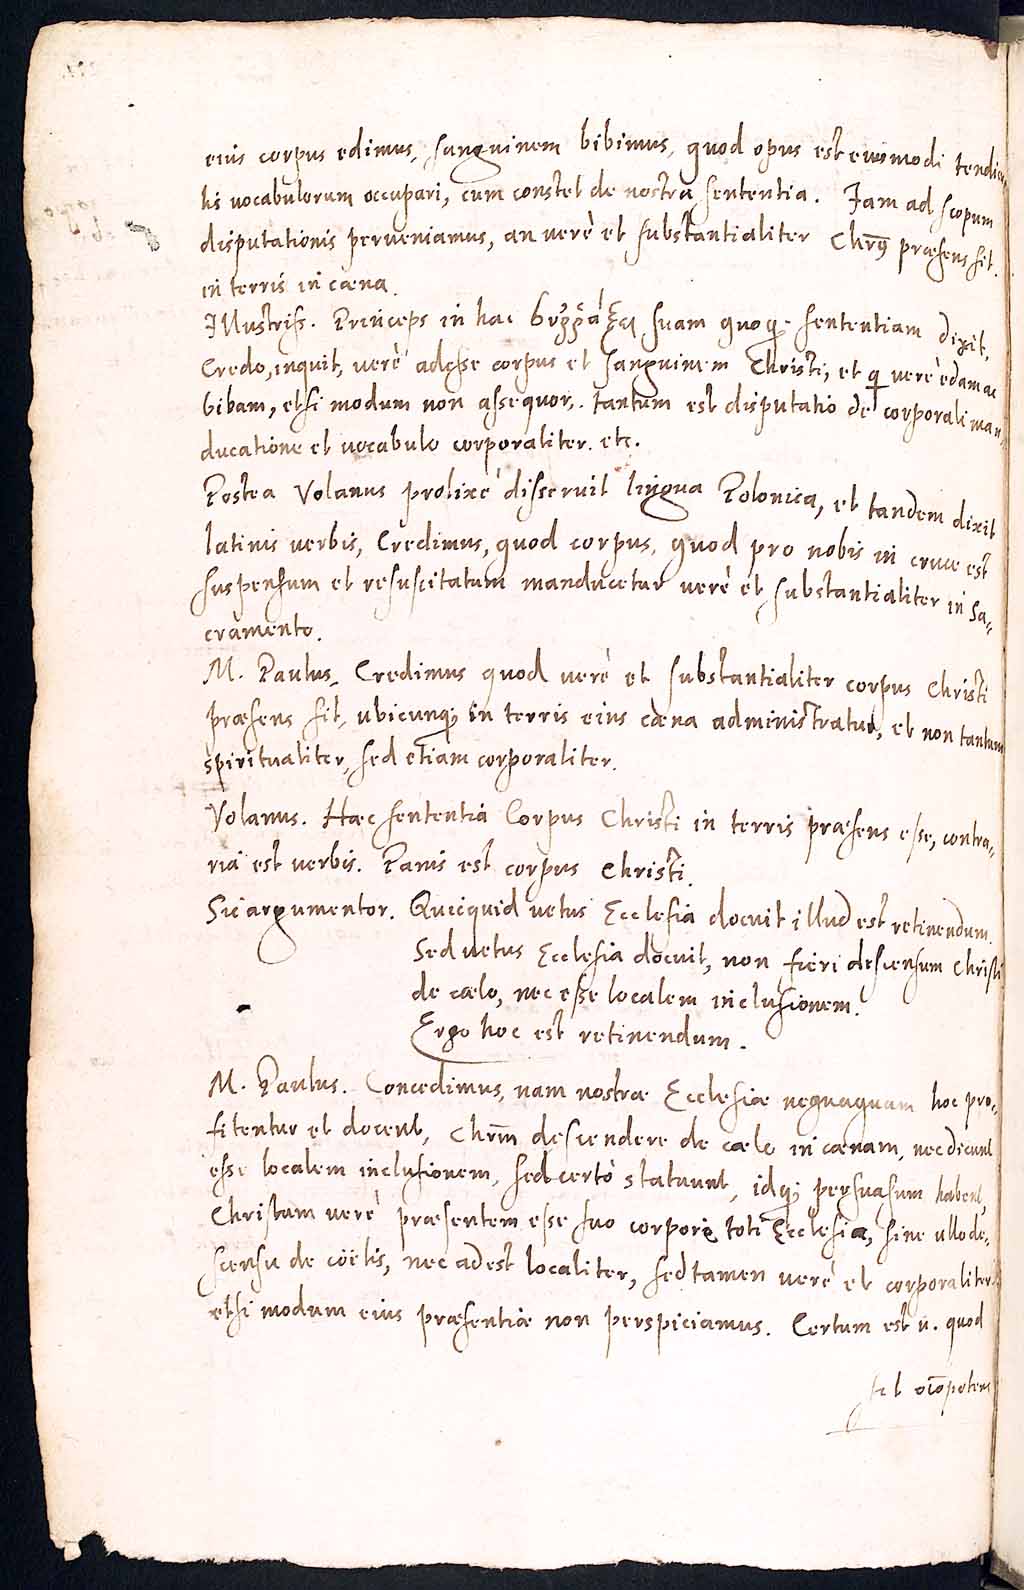 eius corpus edimus, sanguinem bibimus, quod opus est eiusmodi tendicu
lis uocabulorum occupari, cum constet de nostra sententia. Jam ad scopum
disputationis perueniamus, an verè et substantialiter Chrūs præsens sit
in terris in cæna.
Illustriss. Princeps in hac suam quoq; sententiam dixit,
Credo, inquit, verè adesse corpus et sanguinem Christi, et q verè edam ac
bibam, etsi modum non assequor,. tantum est disputatio de corporali man
ducatione et vocabulo corporaliter. etc.
Postea Volanus prolixè disseruit lingua Polonica, et tandem dixit
latinis verbis, Credimus, quod corpus, quod pro nobis in cruce est
suspensum et resuscitatum manducetur uerè et substantialiter in Sa-
cramento.
M. Paulus, Credimus quod uerè et substantialiter corpus Christi
præsens sit, ubicunq; in terris eius cæna administratur, et non tantum
spiritualiter, sed etiam corporaliter.
Volanus. Hæc sententia Corpus Christi in terris præsens esse, contra-
ria est verbis. Panis est corpus Christi.
Sic argumentor. Quicquid uetus Ecclesia docuit illud est retinendum.
Sed uetus Ecclesia docuit, non fieri descensum Christi
de cælo, nec esse localem inclusionem.
Ergo hoc est retinendum.
M. Paulus. Concedimus, nam nostræ Ecclesiæ nequaquam hoc pro-
fitentur et docent, Chrm̄ descendere de cælo in cænam, nec dicunt
esse localem inclusionem, sed certò statuunt, idq; persuasum habent,
Christum verè præsentem esse suo corpore toti Ecclesiæ, sine ullo de-
scensu de cöelis, nec adest localiter, sed tamen verè et corporaliter
etsi modum eius præsentiæ non perspiciamus. Certum est n. quod